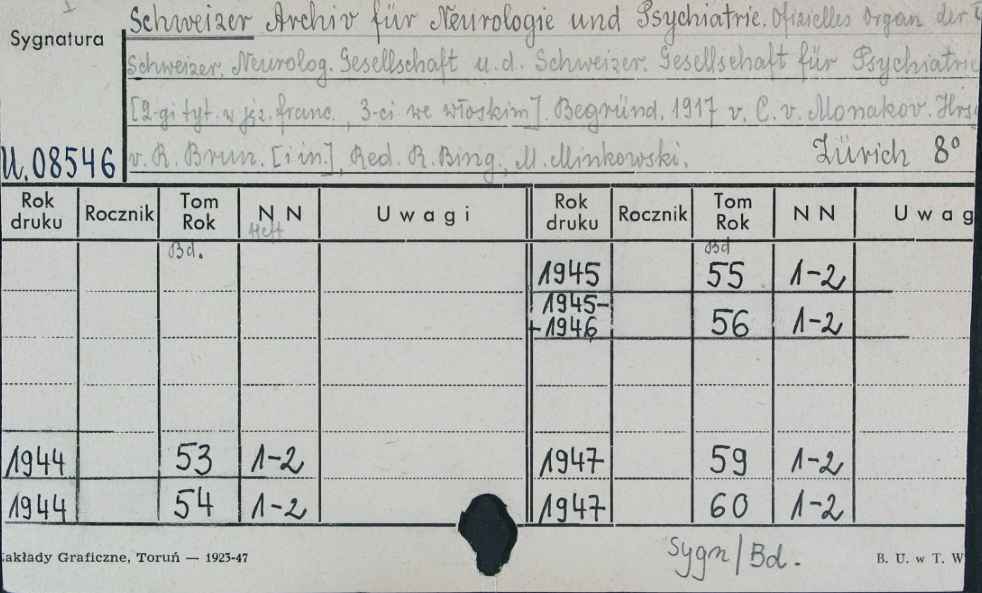 Sygnatura
Schweizer Archiv für Neurologie und Psychiatrie. Ofizielles Organ der
Schweizer. Neurolog. Gesellschaft u.d. Schweizer. Gesellschaft für Psychiatrie
[2-gi tyt. w jęz. franc., 3-ci we włoskim]. Begründ. 1917 v. C. v. Monakov. Hrsg
v. R. Brun. [i in.], Red. R. Bing, M. Minkowski. Zürich 8°
U. 08546
Rok druku Rocznik Tom Rok N N Uwagi Rok druku Rocznik Tom Rok N N Uwag
Heft
Bd. Bd
1945 55 1-2
1945-+1946 56 1-2
1944 53 1-2 1947 59 1-2
1944 54 1-2 1947 60 1-2
akłady Graficzne, Toruń — 1923-47 Sygn/Bd. B. U. w T. W